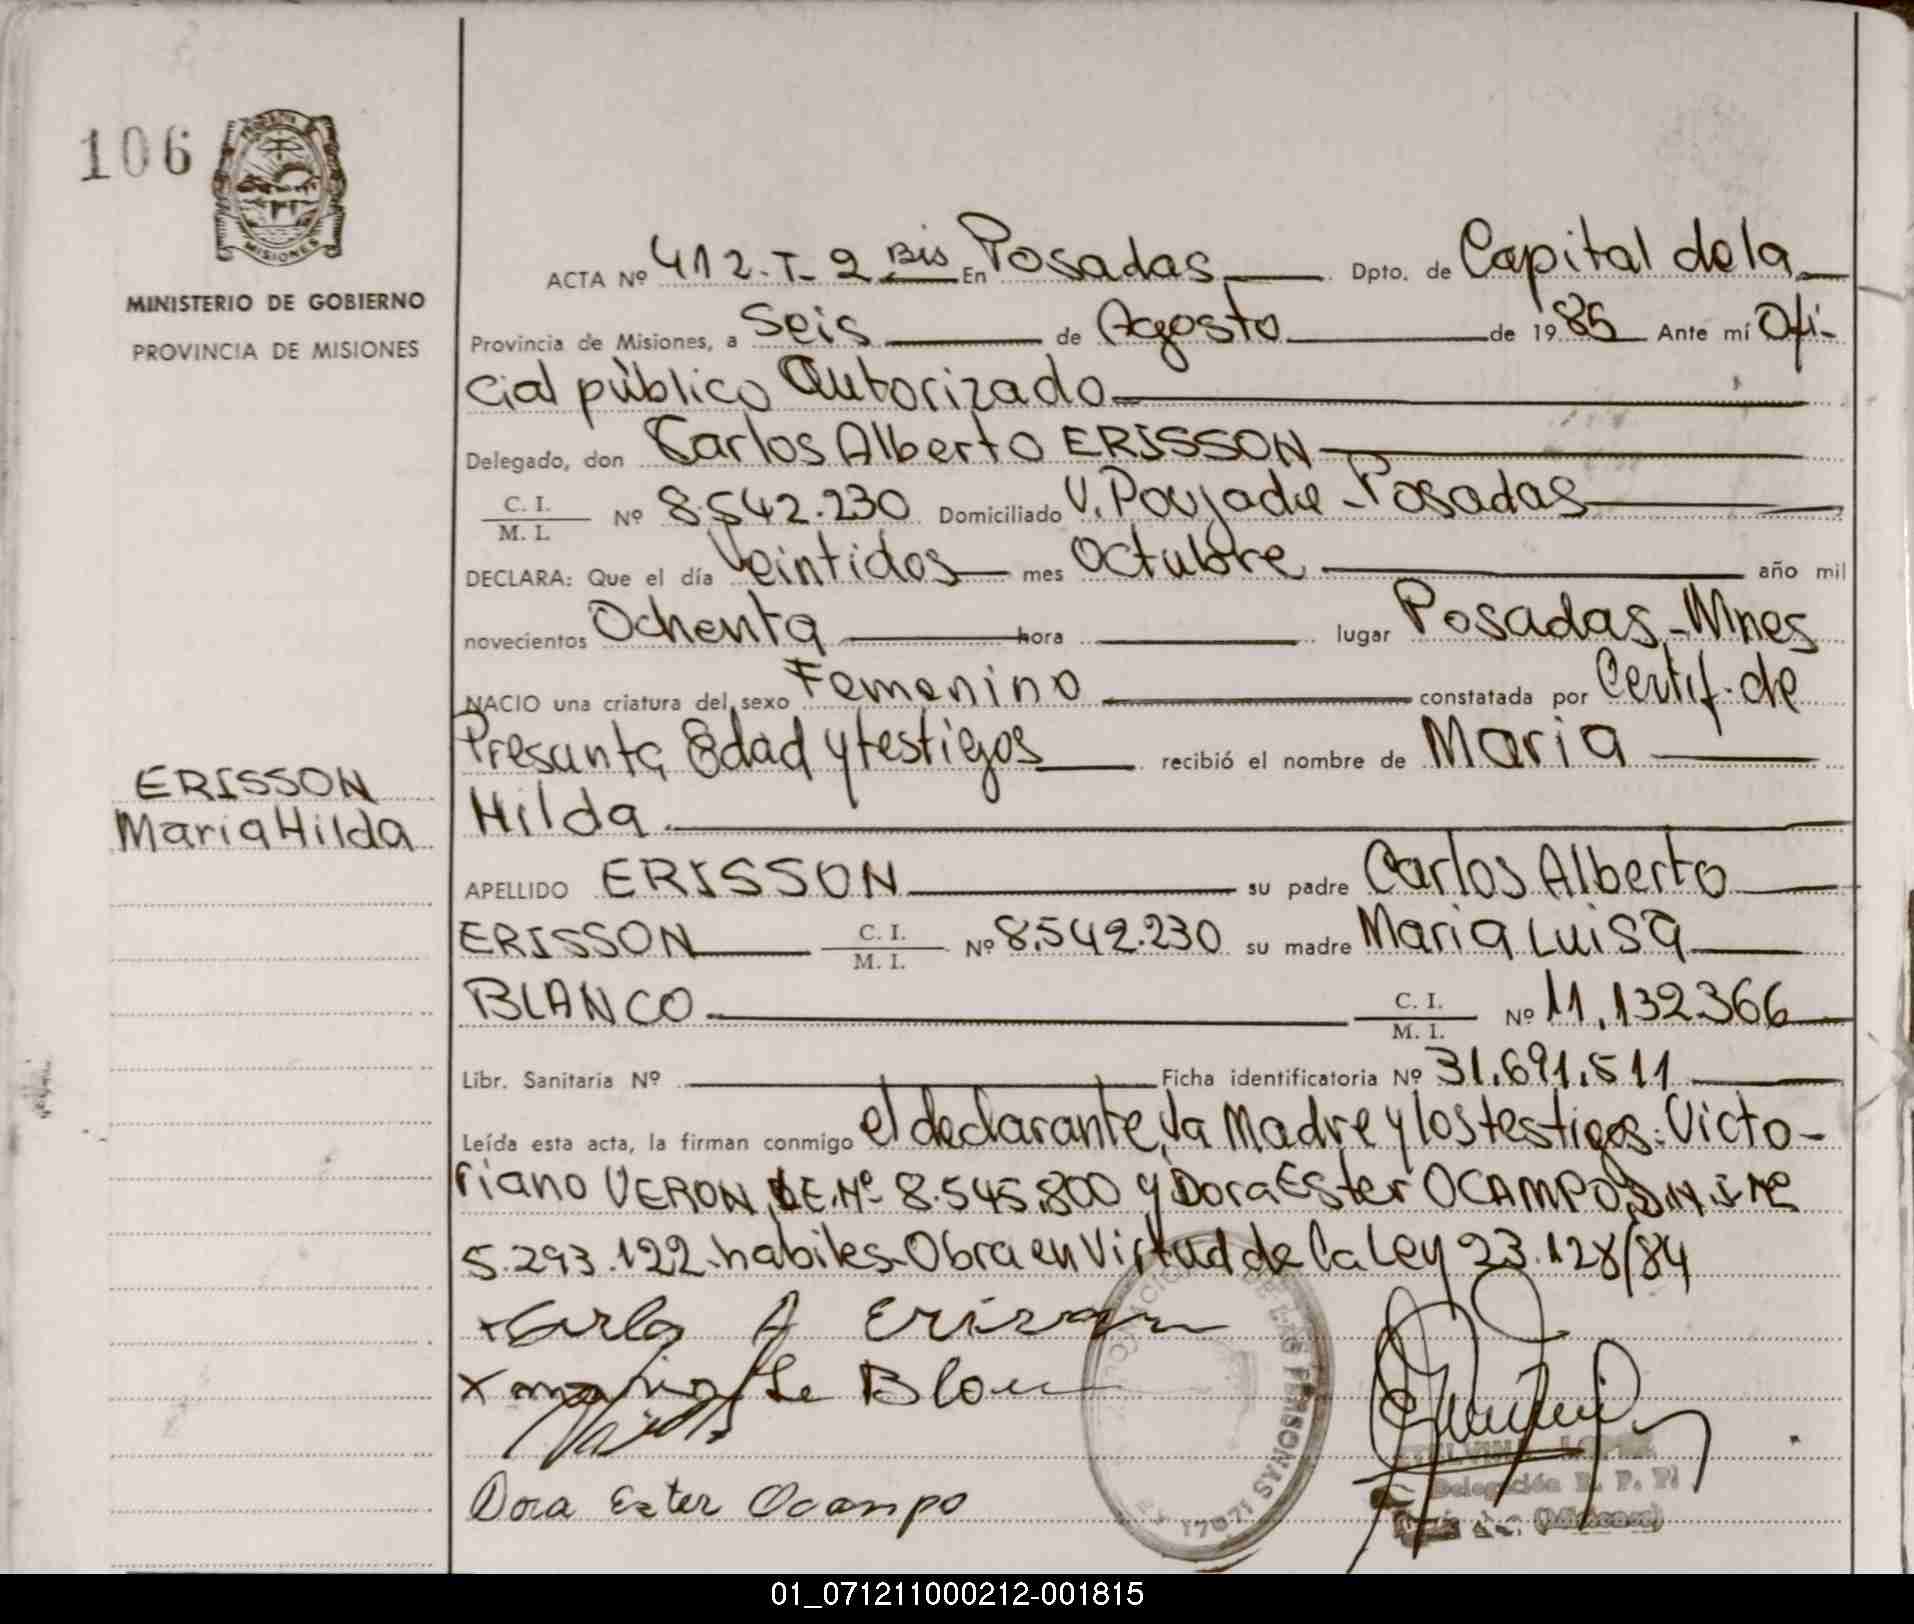 106
MISIONES
MINISTERIO DE GOBIERNO
PROVINCIA DE MISIONES
ERISSON
Maria Hilda
ACTA Nº 412-T-2 Bis En Posadas Dpto. de Capital de la
Provincia de Misiones, a Seis de Agosto de 1985 Ante mí Ofi-
cial público Autorizado
Delegado, don Carlos Alberto ERISSON
C. I.
M. I. Nº 8.542.230 Domiciliado V. Poujade - Posadas
DECLARA: Que el día Veintidos mes Octubre año mil
novecientos Ochenta hora lugar Posadas-Mnes
NACIO una criatura del sexo Femenino constatada por Certif. de
Presunta Edad y testigos recibió el nombre de Maria
Hilda.
APELLIDO ERISSON su padre Carlos Alberto
ERISSON C. I. M. I. Nº 8.542.230 su madre Maria Luisa
BLANCO C. I. M. I. Nº 11.132.366
Libr. Sanitaria Nº Ficha identificatoria Nº 31.691.511
Leída esta acta, la firman conmigo el declarante, la Madre y los testigos: Victo-
riano VERON, L.E. Nº 8.545.800 y Dora Ester OCAMPO D.N.I Nº
5.293.122-habiles-Obra en Virtud de la Ley 23.128/84
Carlos A Erisson
Dora Ester Ocampo
DE LAS PERSONAS
Delegación R. P. P.
(Misiones)
01_071211000212-001815